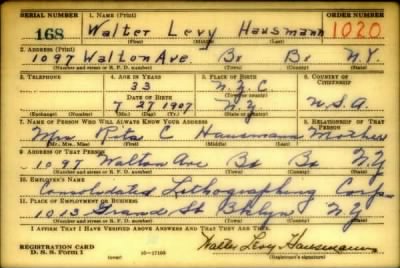 SERIAL NUMBER 1. NAME (Print) ORDER NUMBER
168 Walter Levy Hausmann 1020
(First) (Middle) (Last)
2. ADDRESS (Print)
1097 Walton Ave. Bx Bx N.Y.
(Number and street or R. F. D. number) (Town) (County) (State)
3. TELEPHONE 4. AGE IN YEARS 5. PLACE OF BIRTH 6. COUNTRY OF CITIZENSHIP
33 N.Y.C.
DATE OF BIRTH (Town or county)
7 27 1907 N.Y. U.S.A.
(Exchange) (Number) (Mo.) (Day) (Yr.) (State or country)
7. NAME OF PERSON WHO WILL ALWAYS KNOW YOUR ADDRESS 8. RELATIONSHIP OF THAT PERSON
Mrs C Hausmann Mother
(Mr., Mrs., Miss) (First) (Middle) (Last)
9. ADDRESS OF THAT PERSON
1097 Walton Ave Bx Bx N.Y
(Number and street or R. F. D. number) (Town) (County) (State)
10. EMPLOYER'S NAME
Consolidated Lithographing Corp.
11. PLACE OF EMPLOYMENT OR BUSINESS
1013 Grand St Bklyn N.Y.
(Number and street or R. F. D. number) (Town) (County) (State)
I AFFIRM THAT I HAVE VERIFIED ABOVE ANSWERS AND THAT THEY ARE TRUE.
REGISTRATION CARD
D. S. S. Form 1 (over) 16-17105 Walter Levy Hausmann
(Registrant's signature)